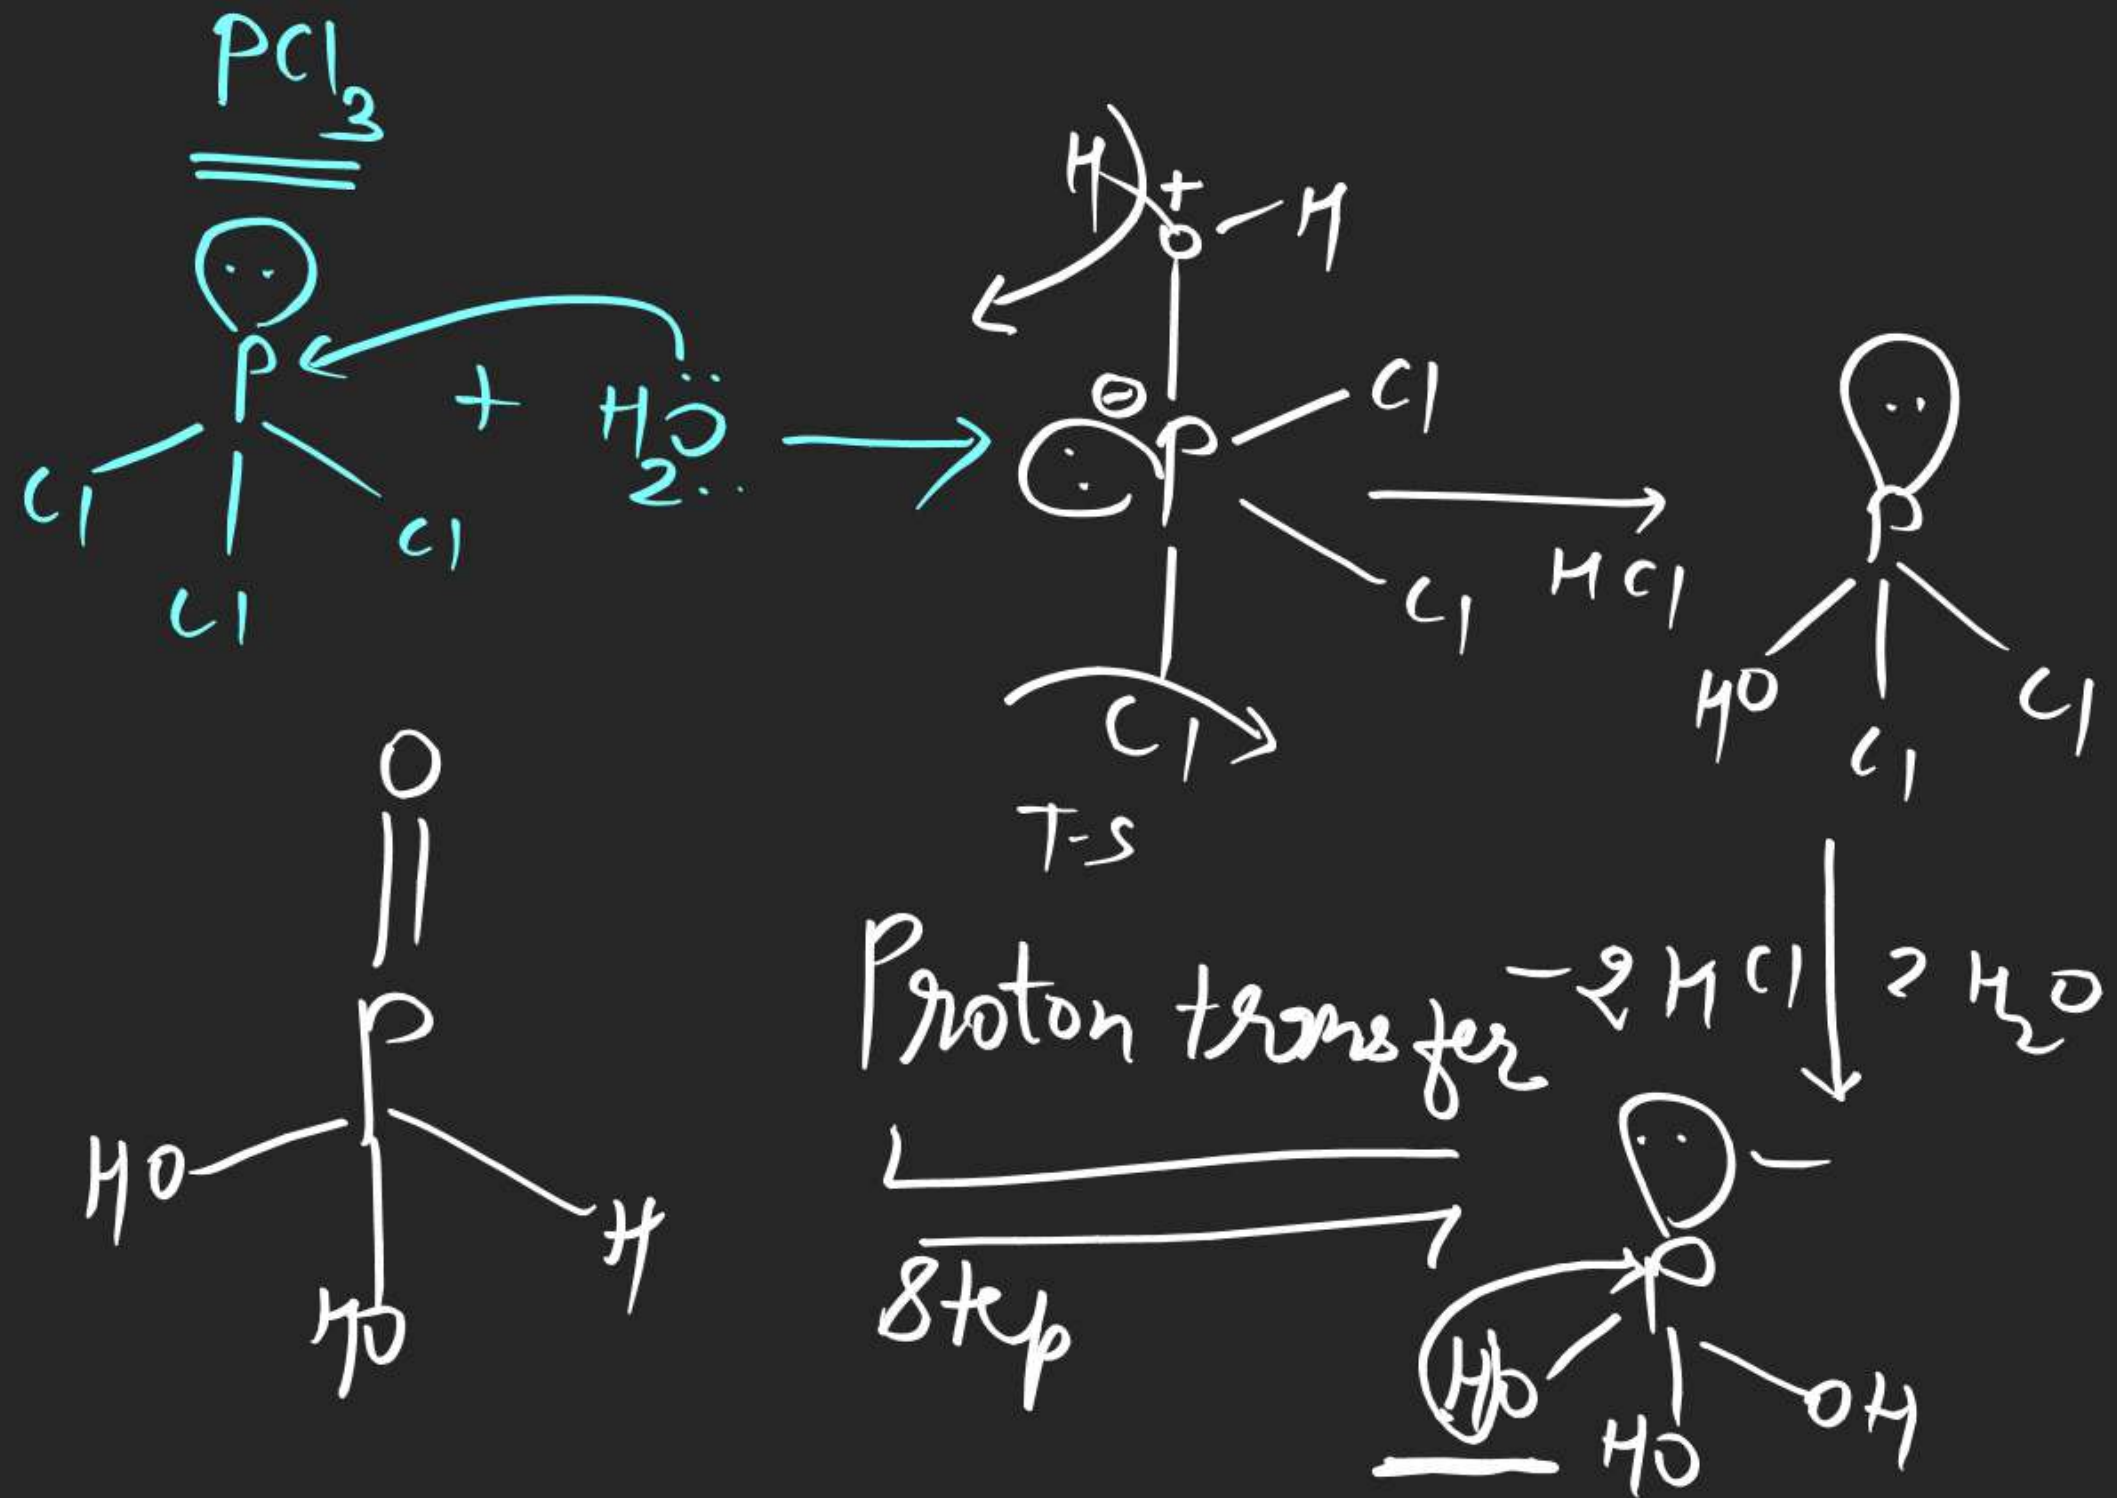 PCl₃
P
Cl
Cl
Cl
+ H₂O
H
+
O - H
⊖
P
Cl
Cl
Cl
T-S
HCl
P
HO
Cl
Cl
-2HCl
2H₂O
P
HO
HO
OH
Proton transfer
Step
O
P
HO
HO
H